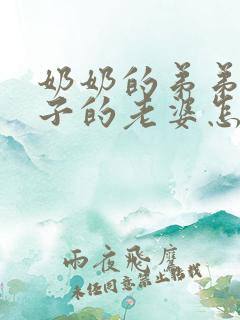 奶奶的弟弟
子的老婆怎
雨夜飛摩
未经同意禁止转载